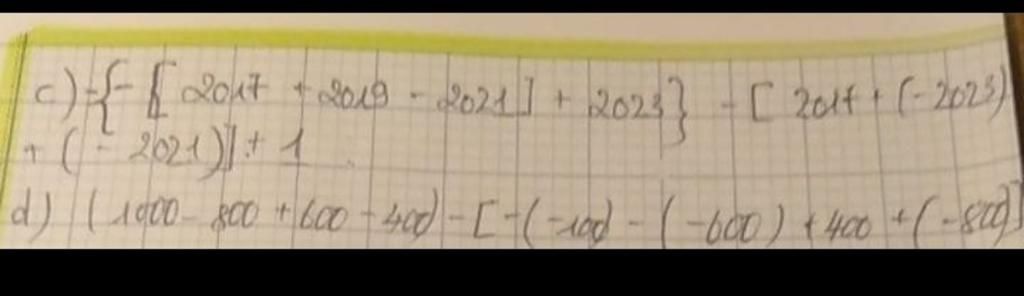 c) -{- [ 2017 + 2019 - 2021 ] + 2023} - [ 2017 + (- 2023)
+ (- 2021)] + 1
d) (1000 - 800 + 600 - 400) - [ -(-100) - (-600) + 400 + (-800)]